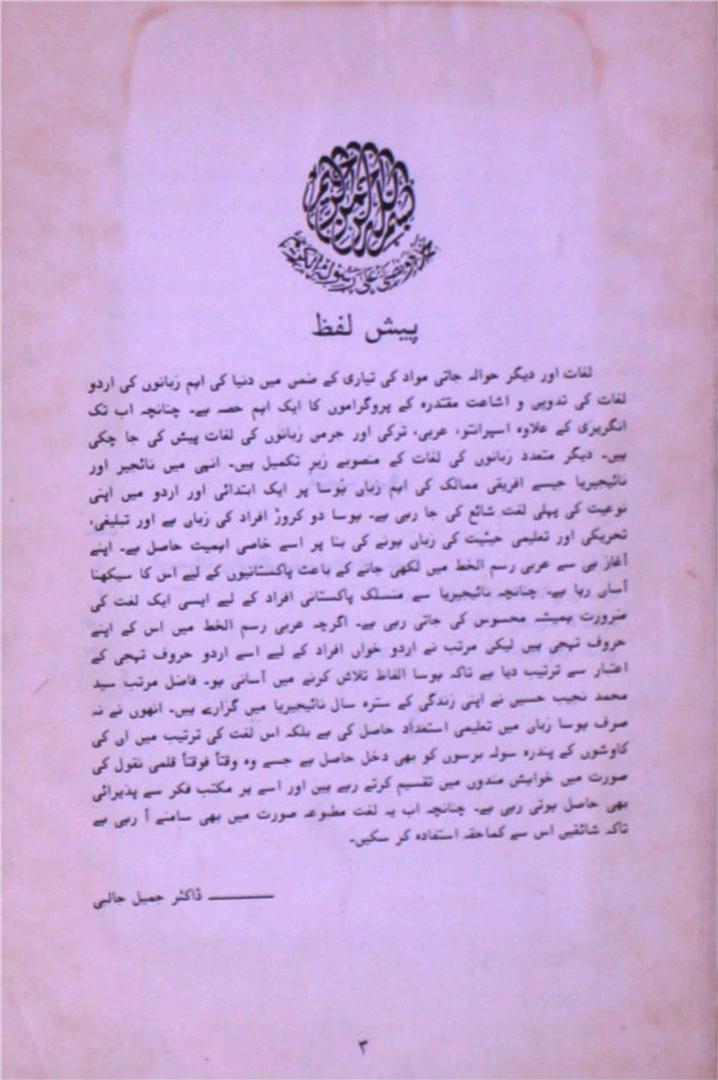 بسم الله الرحمن الرحيم
نحمده ونصلی علی رسوله الكريم
پیش لفظ
لغات اور دیگر حوالہ جاتی مواد کی تیاری کے ضمن میں دنیا کی اہم زبانوں کی اردو
لغات کی تدوین و اشاعت مقتدرہ کے پروگراموں کا ایک اہم حصہ ہے۔ چنانچہ اب تک
انگریزی کے علاوہ اسپرانتو، عربی، ترکی اور جرمن زبانوں کی لغات پیش کی جا چکی
ہیں۔ دیگر متعدد زبانوں کی لغات کے منصوبے زیرِ تکمیل ہیں۔ انہی میں نائجیر اور
نائیجیریا جیسے افریقی ممالک کی اہم زبان ہوسا پر ایک ابتدائی اور اردو میں اپنی
نوعیت کی پہلی لغت شائع کی جا رہی ہے۔ ہوسا دو کروڑ افراد کی زبان ہے اور تبلیغی،
تحریکی اور تعلیمی حیثیت کی زبان ہونے کی بنا پر اسے خاصی اہمیت حاصل ہے۔ اپنے
آغاز ہی سے عربی رسم الخط میں لکھی جانے کے باعث پاکستانیوں کے لیے اس کا سیکھنا
آسان رہا ہے۔ چنانچہ نائیجیریا سے منسلک پاکستانی افراد کے لیے ایسی ایک لغت کی
ضرورت ہمیشہ محسوس کی جاتی رہی ہے۔ اگرچہ عربی رسم الخط میں اس کے اپنے
حروف تہجی ہیں لیکن مرتب نے اردو خواں افراد کے لیے اسے اردو حروف تہجی کے
اعتبار سے ترتیب دیا ہے تاکہ ہوسا الفاظ تلاش کرنے میں آسانی ہو۔ فاضل مرتب سید
محمد نجیب حسین نے اپنی زندگی کے سترہ سال نائیجیریا میں گزارے ہیں۔ انھوں نے نہ
صرف ہوسا زبان میں تعلیمی استعداد حاصل کی ہے بلکہ اس لغت کی ترتیب میں ان کی
کاوشوں کے پندرہ سولہ برسوں کو بھی دخل حاصل ہے جسے وہ وقتاً فوقتاً قلمی نقول کی
صورت میں خواہش مندوں میں تقسیم کرتے رہے ہیں اور اسے ہر مکتب فکر سے پذیرائی
بھی حاصل ہوتی رہی ہے۔ چنانچہ اب یہ لغت مطبوعہ صورت میں بھی سامنے آ رہی ہے
تاکہ شائقین اس سے کماحقہ استفادہ کر سکیں۔
ڈاکٹر جمیل جالبی
۳